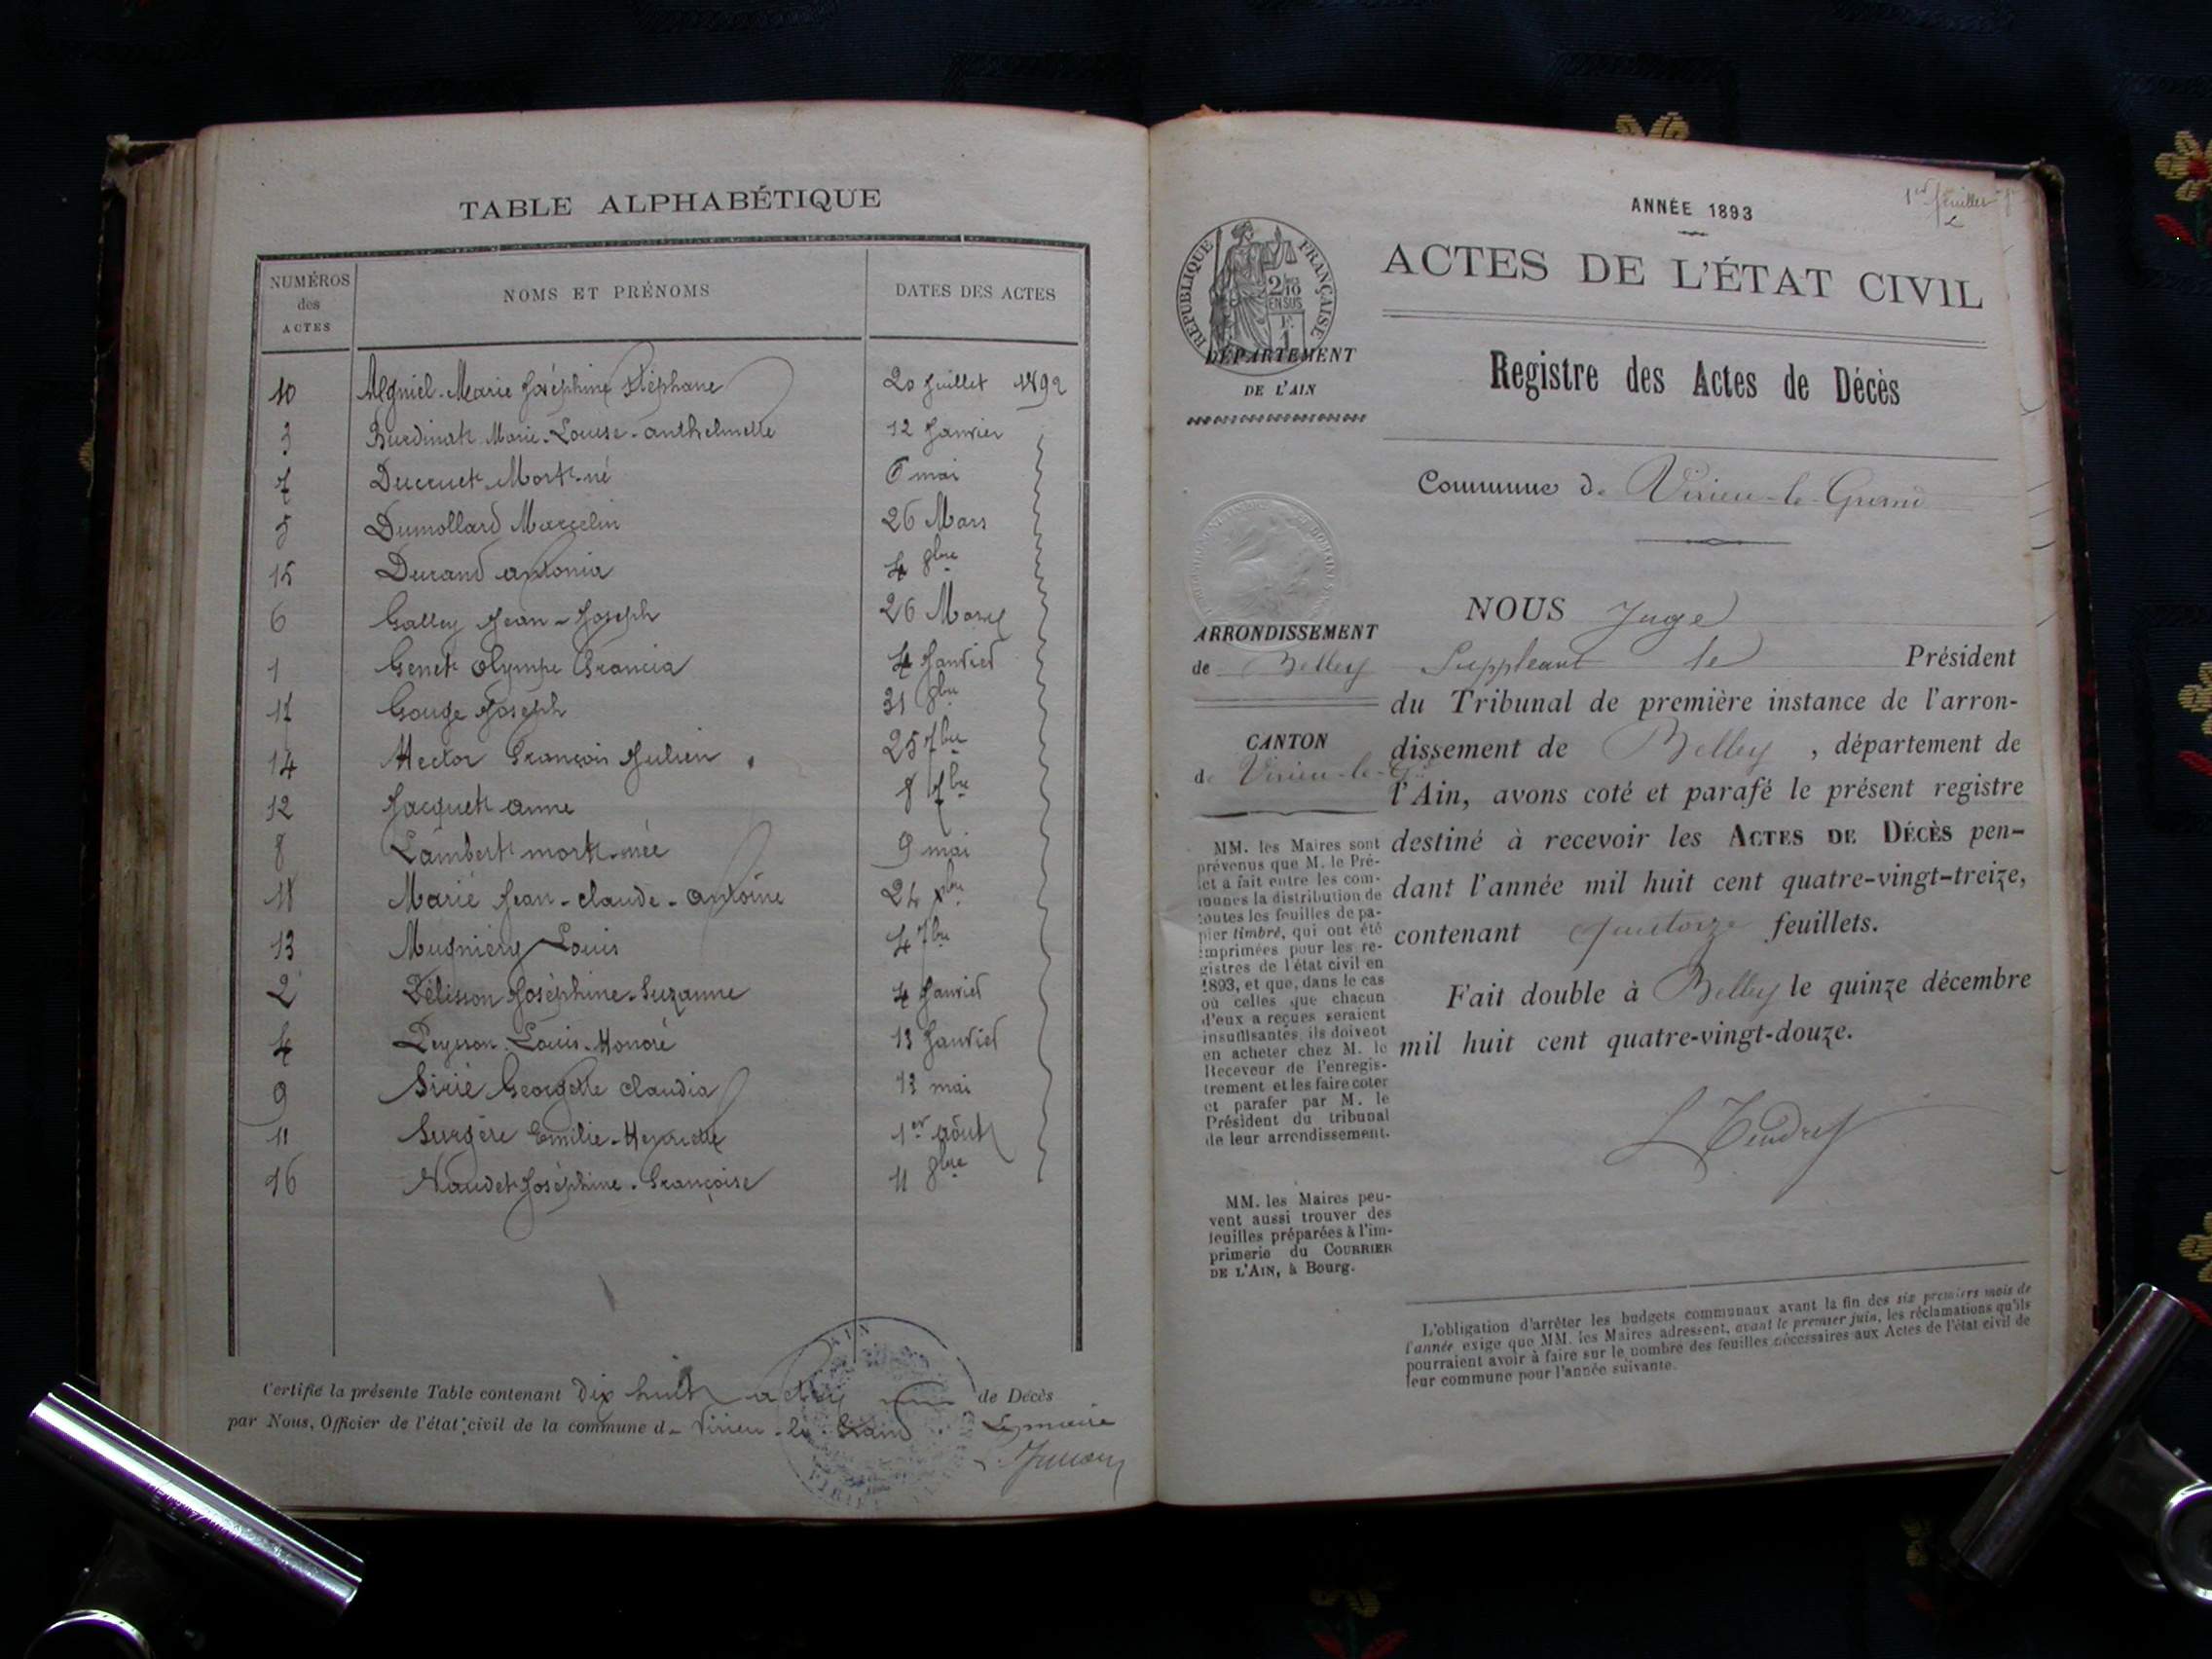 TABLE ALPHABÉTIQUE
NUMÉROS
des
ACTES
NOMS ET PRÉNOMS
DATES DES ACTES
10 Marie Joséphine Stéphane 20 Juillet 1892
3 Marie-Louise-anthelmette 12 Janvier
7 Ducruet Mort-né 6 mai
5 Dumollard Marcelin 26 Mars
15 Durand antonia 4 8bre
6 Galley Jean-Joseph 26 Mars
1 Genet Olympe Francia 4 Janvier
17 Gouge Joseph 31 8bre
14 Hector François Julien 25 7bre
12 Jacquet anne 8 7bre
8 Lambert mort-née 9 mai
18 Marie Jean-claude-antoine 24 Xbre
13 Mugniery Louis 4 7bre
2 Pélisson Joséphine-Suzanne 4 Janvier
4 Peysson Louis-Honoré 13 Janvier
9 Sirié Georgette Claudia 13 mai
11 Surgère Emilie-Henriette 1er août
16 Naudet Joséphine-Françoise 11 8bre
Certifié la présente Table contenant Dix huit actes de Décès
par Nous, Officier de l'état civil de la commune de Virieu-le-Grand Le maire
1er feuillet
ANNÉE 1893
ACTES DE L'ÉTAT CIVIL
RÉPUBLIQUE FRANÇAISE
2/10
EN SUS
F.
1
DÉPARTEMENT
DE L'AIN
Registre des Actes de Décès
Commune de Virieu-le-Grand
ARRONDISSEMENT
de Belley
CANTON
de Virieu-le-Gd
MM. les Maires sont
prévenus que M. le Pré-
fet a fait entre les com-
munes la distribution de
toutes les feuilles de pa-
pier timbré, qui ont été
imprimées pour les re-
gistres de l'état civil en
1893, et que, dans le cas
où celles que chacun
d'eux a reçues seraient
insuffisantes, ils doivent
en acheter chez M. le
Receveur de l'enregis-
trement et les faire coter
et parafer par M. le
Président du tribunal
de leur arrondissement.
MM. les Maires peu-
vent aussi trouver des
feuilles préparées à l'im-
primerie du COURRIER
DE L'AIN, à Bourg.
NOUS Juge
Suppléant le Président
du Tribunal de première instance de l'arron-
dissement de Belley, département de
l'Ain, avons coté et parafé le présent registre
destiné à recevoir les ACTES DE DÉCÈS pen-
dant l'année mil huit cent quatre-vingt-treize,
contenant quatorze feuillets.
Fait double à Belley le quinze décembre
mil huit cent quatre-vingt-douze.
L'obligation d'arrêter les budgets communaux avant la fin des six premiers mois de
l'année exige que MM. les Maires adressent, avant le premier juin, les réclamations qu'ils
pourraient avoir à faire sur le nombre des feuilles nécessaires aux Actes de l'état civil de
leur commune pour l'année suivante.